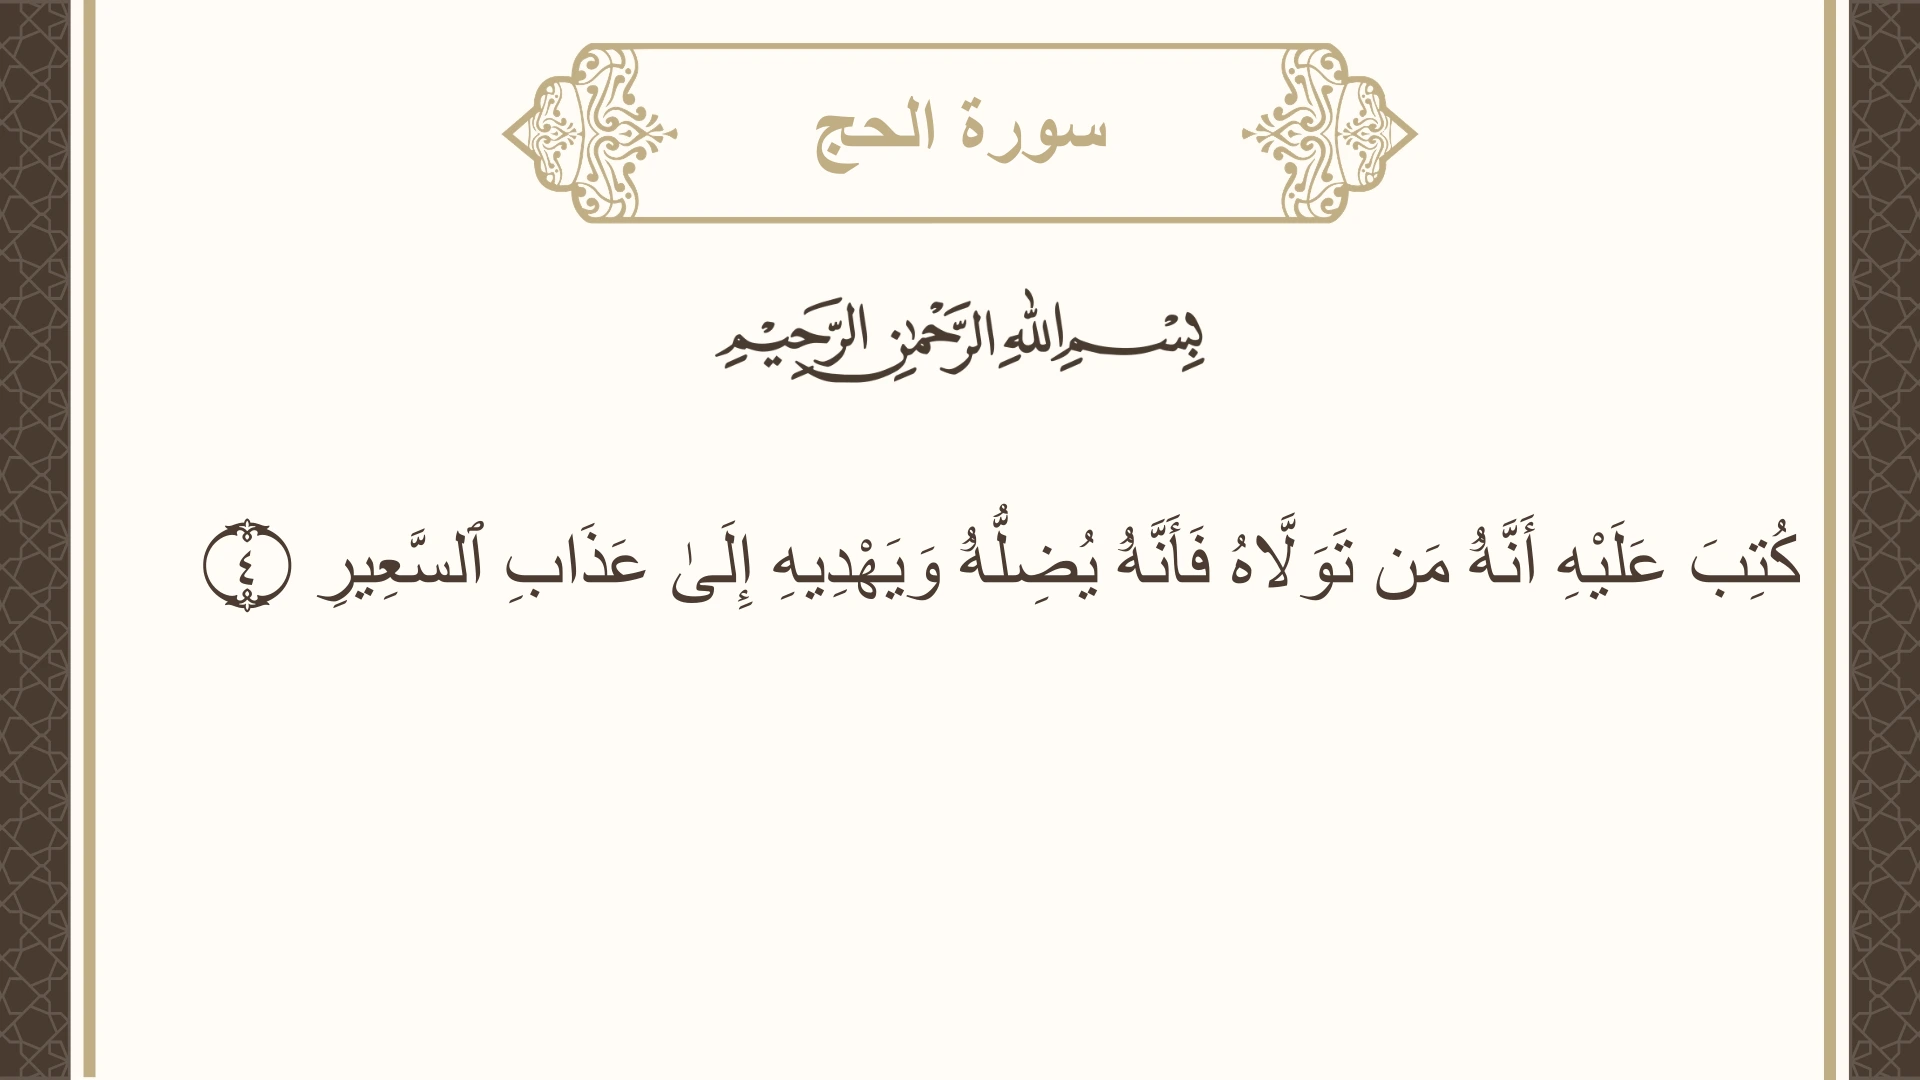 سورة الحج
بِسْمِ اللهِ الرَّحْمٰنِ الرَّحِيْمِ
كُتِبَ عَلَيْهِ أَنَّهُۥ مَن تَوَلَّاهُ فَأَنَّهُۥ يُضِلُّهُۥ وَيَهْدِيهِ إِلَىٰ عَذَابِ ٱلسَّعِيرِ ٤